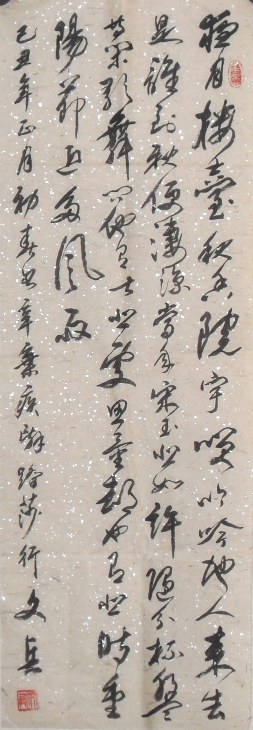 夜月樓臺秋香院宇笑吟吟地人來去
是誰到秋便淒涼當年宋玉悲如許隨分杯盤
等閑歌舞問他有甚悲處思量却也有悲時重
陽節近多風雨
己丑年正月初春書辛棄疾詞踏莎行文兵